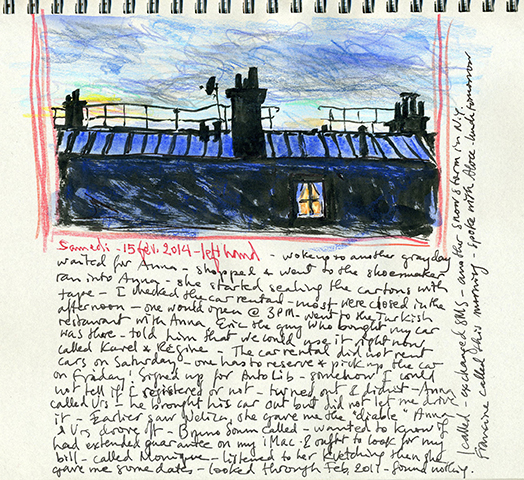 Samedi - 15 fév. 2014 - left hand - woke up to another gray day
waited for Anna - shopped & went to the shoemaker
ran into Anna - she started sealing the cartons with
tape - I checked the car rental - most were closed in the
afternoon - one would open @ 3PM - went to the Turkish
restaurant with Anna, Eric the guy who bought my car
was there - told him that we could use it right now
called Karel & Régine - The car rental did not rent
cars on Saturday - one has to reserve & pick up the car
on Friday! Signed up for AutoLib - somehow I could
not tell if I registered or not - turned out I didn't - Anna
called Urs - he brought his car out but did not let me drive
it - Earlier saw she gave me the "diable" Anna
& Urs drove it - called - wanted to know if I
had extended guarantee on my iMac - I ought to look for my
bill - called Monique - listened to her kvetching then she
gave me some dates - looked through Feb 2011 - found nothing.
I called - exchanged SMS - another snow storm in N.Y.
Francine called this morning - spoke with - lunch tomorrow